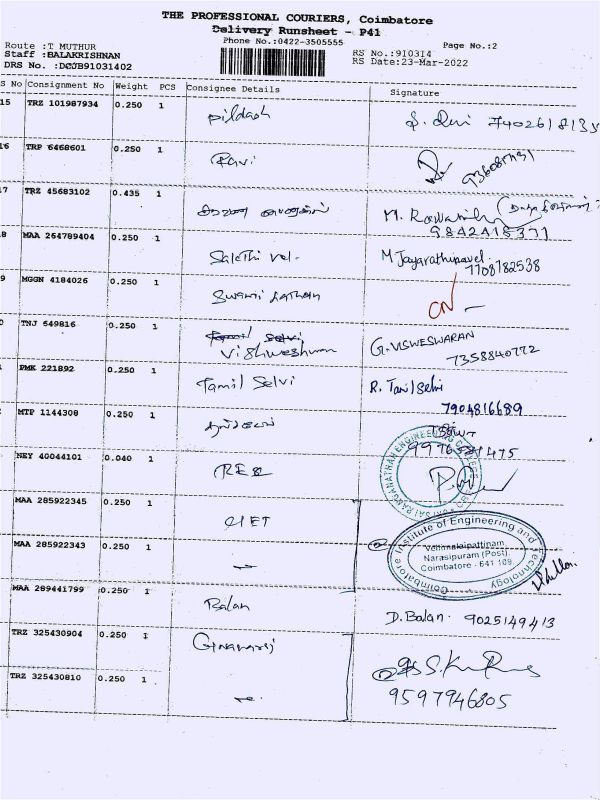 THE PROFESSIONAL COURIERS, Coimbatore
Delivery Runsheet - P41
Phone No.:0422-3505555
Page No.:2
Route :T MUTHUR
Staff :BALAKRISHNAN
RS No.:910314
DRS No. :DCJB91031402
RS Date:23-Mar-2022
S No Consignment No Weight PCS Consignee Details Signature
15 TRZ 101987934 0.250 1
16 TRP 6468601 0.250 1 Ravi
17 TRZ 45683102 0.435 1 M.
9842415371
8 MAA 264789404 0.250 1 Sakthi vel. M Jayarathinavel
7708782538
9 MGGN 4184026 0.250 1 Swami nathan CN
0 TNJ 649816 0.250 1 Tamil Selvi
Vishweshwan G. VISWESWARAN
7358840772
PMK 221892 0.250 1 Tamil Selvi R. Tamilselvi
7904816689
MTP 1144308 0.250 1
NEY 40044101 0.040 1 REC
MAA 285922345 0.250 1 CIET
MAA 285922343 0.250 1 -
Coimbatore Institute of Engineering and Technology
Vellimalaipattinam,
Narasipuram (Post),
Coimbatore - 641 109.
MAA 289441799 0.250 1 Balan D. Balan. 9025149413
TRZ 325430904 0.250 1 Gnanaraj
TRZ 325430810 0.250 1 - 9597946805